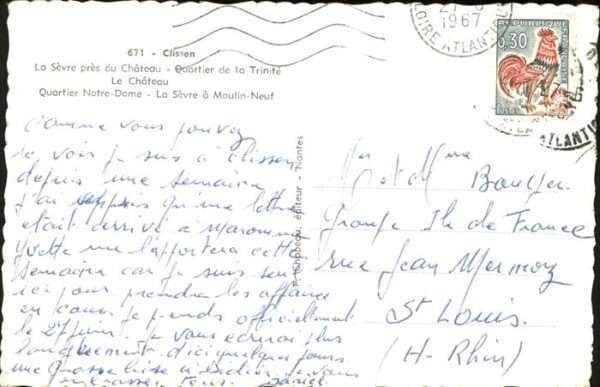 671 - Clisson
La Sèvre près du Château - Quartier de la Trinité
Le Château
Quartier Notre-Dame - La Sèvre à Moulin-Neuf
1967
LOIRE ATLANTIQUE
0,30
Chapeau, éditeur - Nantes
Comme vous pouvez
le voir je suis à Clisson
depuis une semaine
j'ai appris qu'une lettre
était arrivé à
Yvette me l'apportera cette
semaine car je suis seul
ici pour prendre les affaires
en cours je prends officiellement
le 27 juin je vous écrirai plus
longuement d'ici quelques jours
une grosse bise à
embrasse tous. Daniel
Mr et Mme
Groupe Ile de France
rue Jean Mermoz
St Louis
(H-Rhin)